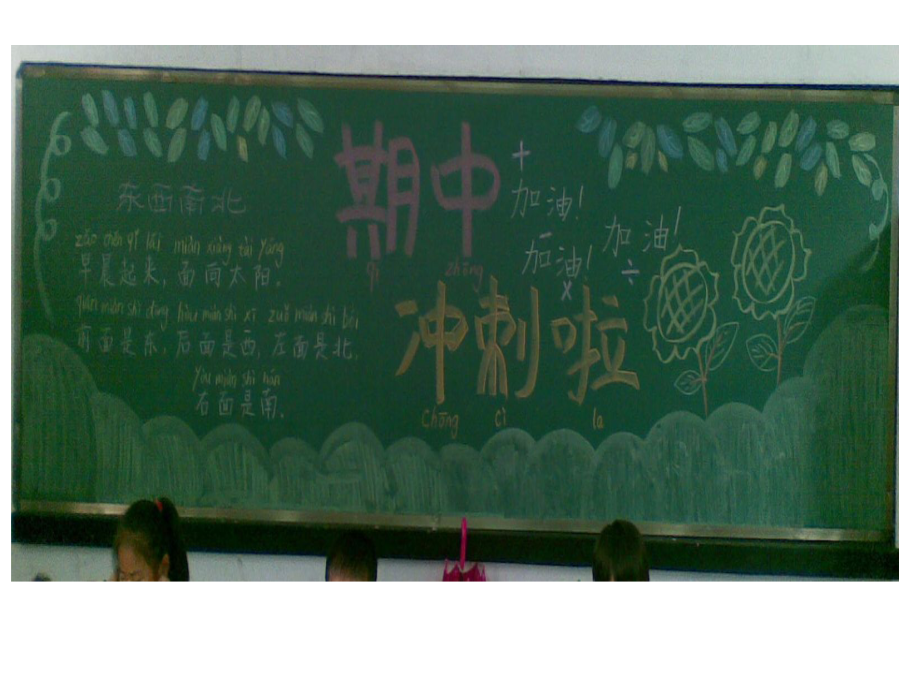 东西南北
zǎo chén qǐ lái miàn xiàng tài yáng
早晨起来，面向太阳。
qián miàn shì dōng hòu miàn shì xī zuǒ miàn shì běi
前面是东，后面是西，左面是北，
yòu miàn shì nán
右面是南。
期中
qī zhōng
冲刺啦
chōng cì la
+
加油！
-
加油！
×
加油！
÷